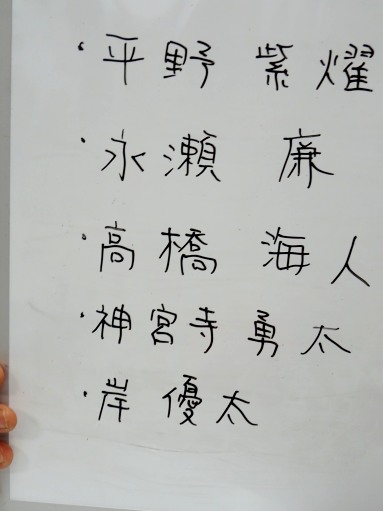 ・平野 紫耀
・永瀬 廉
・高橋 海人
・神宮寺勇太
・岸 優太